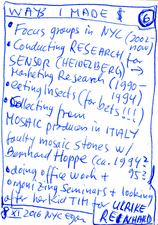 WAYS I MADE $ 6
• Focus groups in NYC (2002-now)
• Conducting RESEARCH for
SENSOR (HEIDELBERG) →
Marketing Research (1990-
1994)
• Eating Insects (for bets!!!)
• Collecting from
MOSAIC producer in ITALY
faulty mosaic stones w/
Bernhard Hoppe (ca. 1994?
95?
• doing office work +
organizing Seminars + looking
after her kid Till for ULRIKE
REINHARD
8 XI 2016 NYC Egon